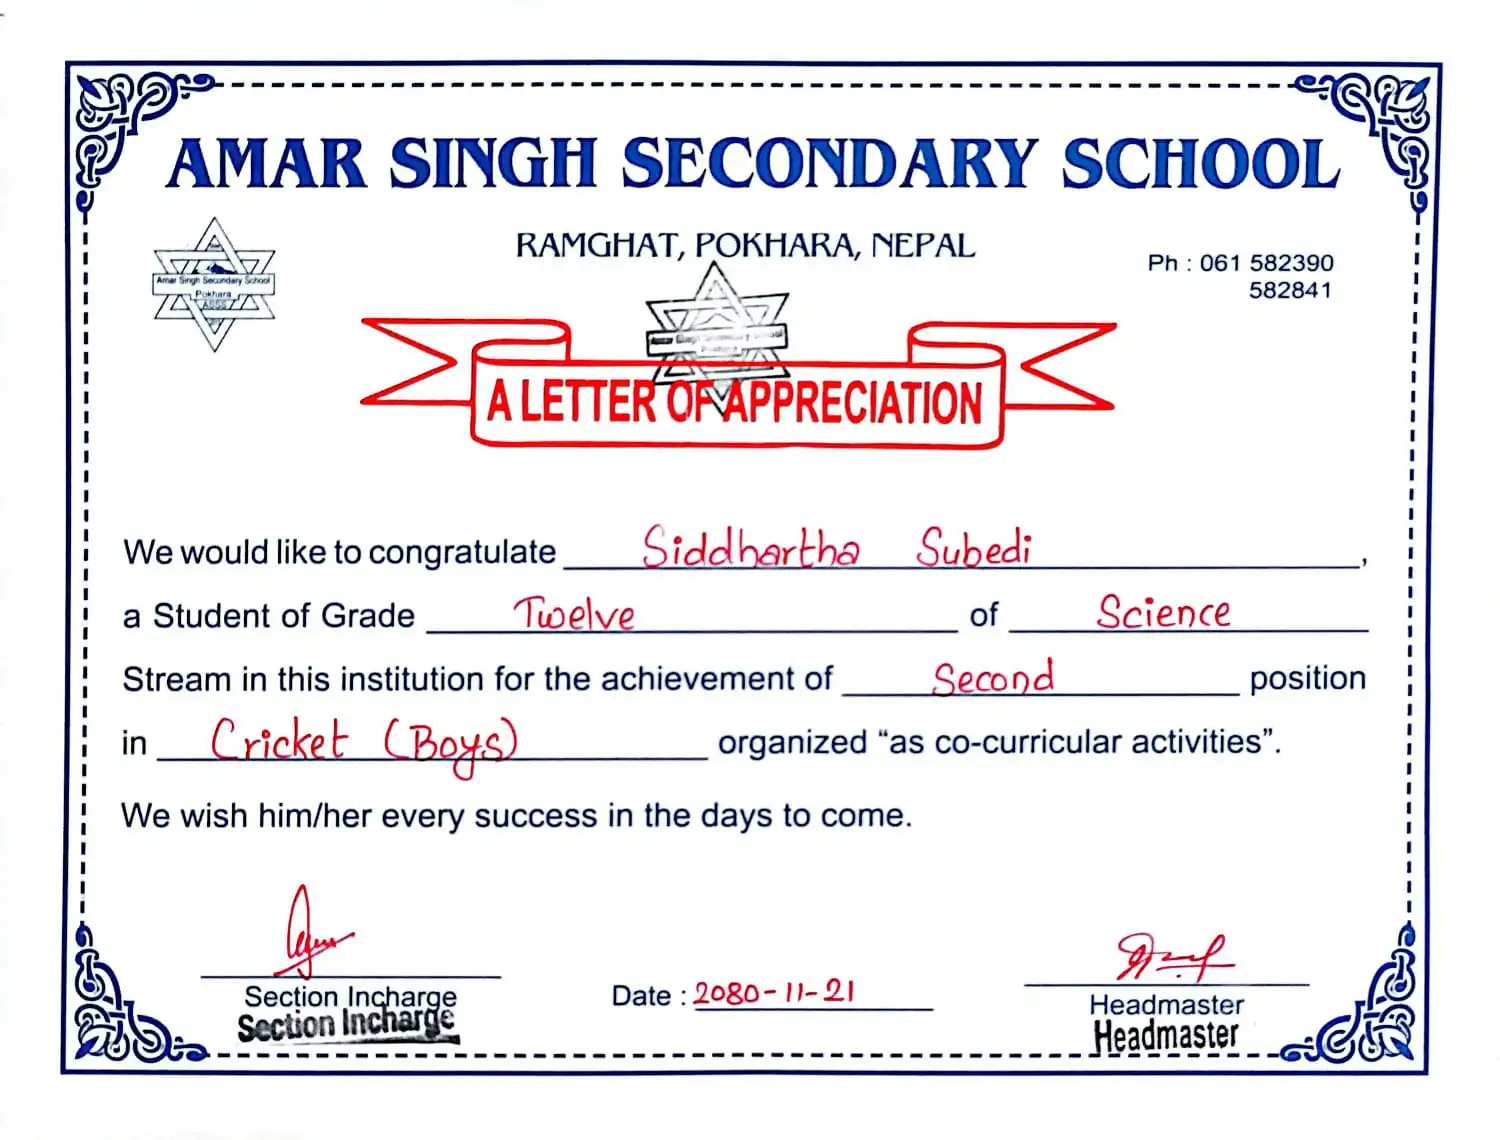 AMAR SINGH SECONDARY SCHOOL
RAMGHAT, POKHARA, NEPAL
Ph : 061 582390
582841
Amar Singh Secondary School
Pokhara
ASSS
Amar Singh Secondary School
Pokhara
A LETTER OF APPRECIATION
We would like to congratulate Siddhartha Subedi,
a Student of Grade Twelve of Science
Stream in this institution for the achievement of Second position
in Cricket (Boys) organized “as co-curricular activities”.
We wish him/her every success in the days to come.
Section Incharge
Section Incharge
Date : 2080-11-21
Headmaster
Headmaster